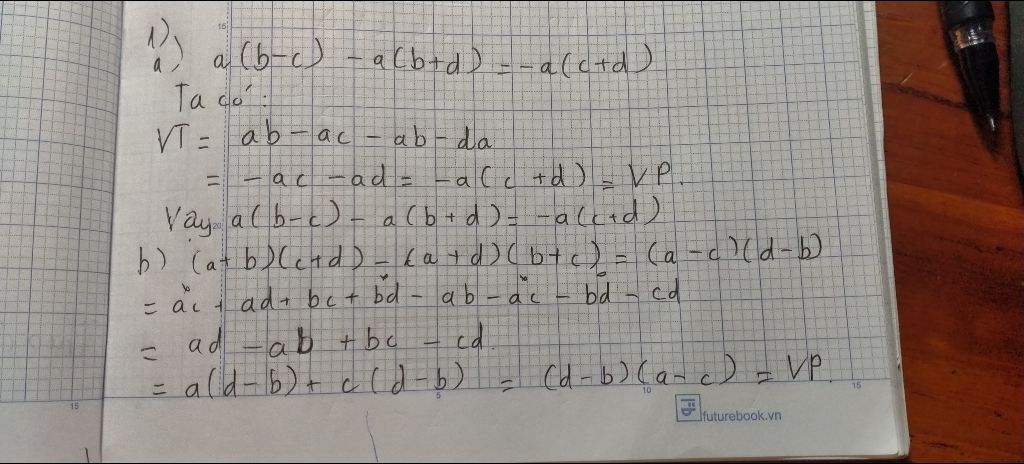 1)
a) a(b-c) - a(b+d) = -a(c+d)
Ta có:
VT = ab - ac - ab - da
= -ac - ad = -a(c+d) = VP.
Vậy a(b-c) - a(b+d) = -a(c+d)
b) (a+b)(c+d) - (a+d)(b+c) = (a-c)(d-b)
= ac + ad + bc + bd - ab - ac - bd - cd
= ad - ab + bc - cd.
= a(d-b) + c(d-b) = (d-b)(a-c) = VP.
15
20
15
5
10
15
futurebook.vn